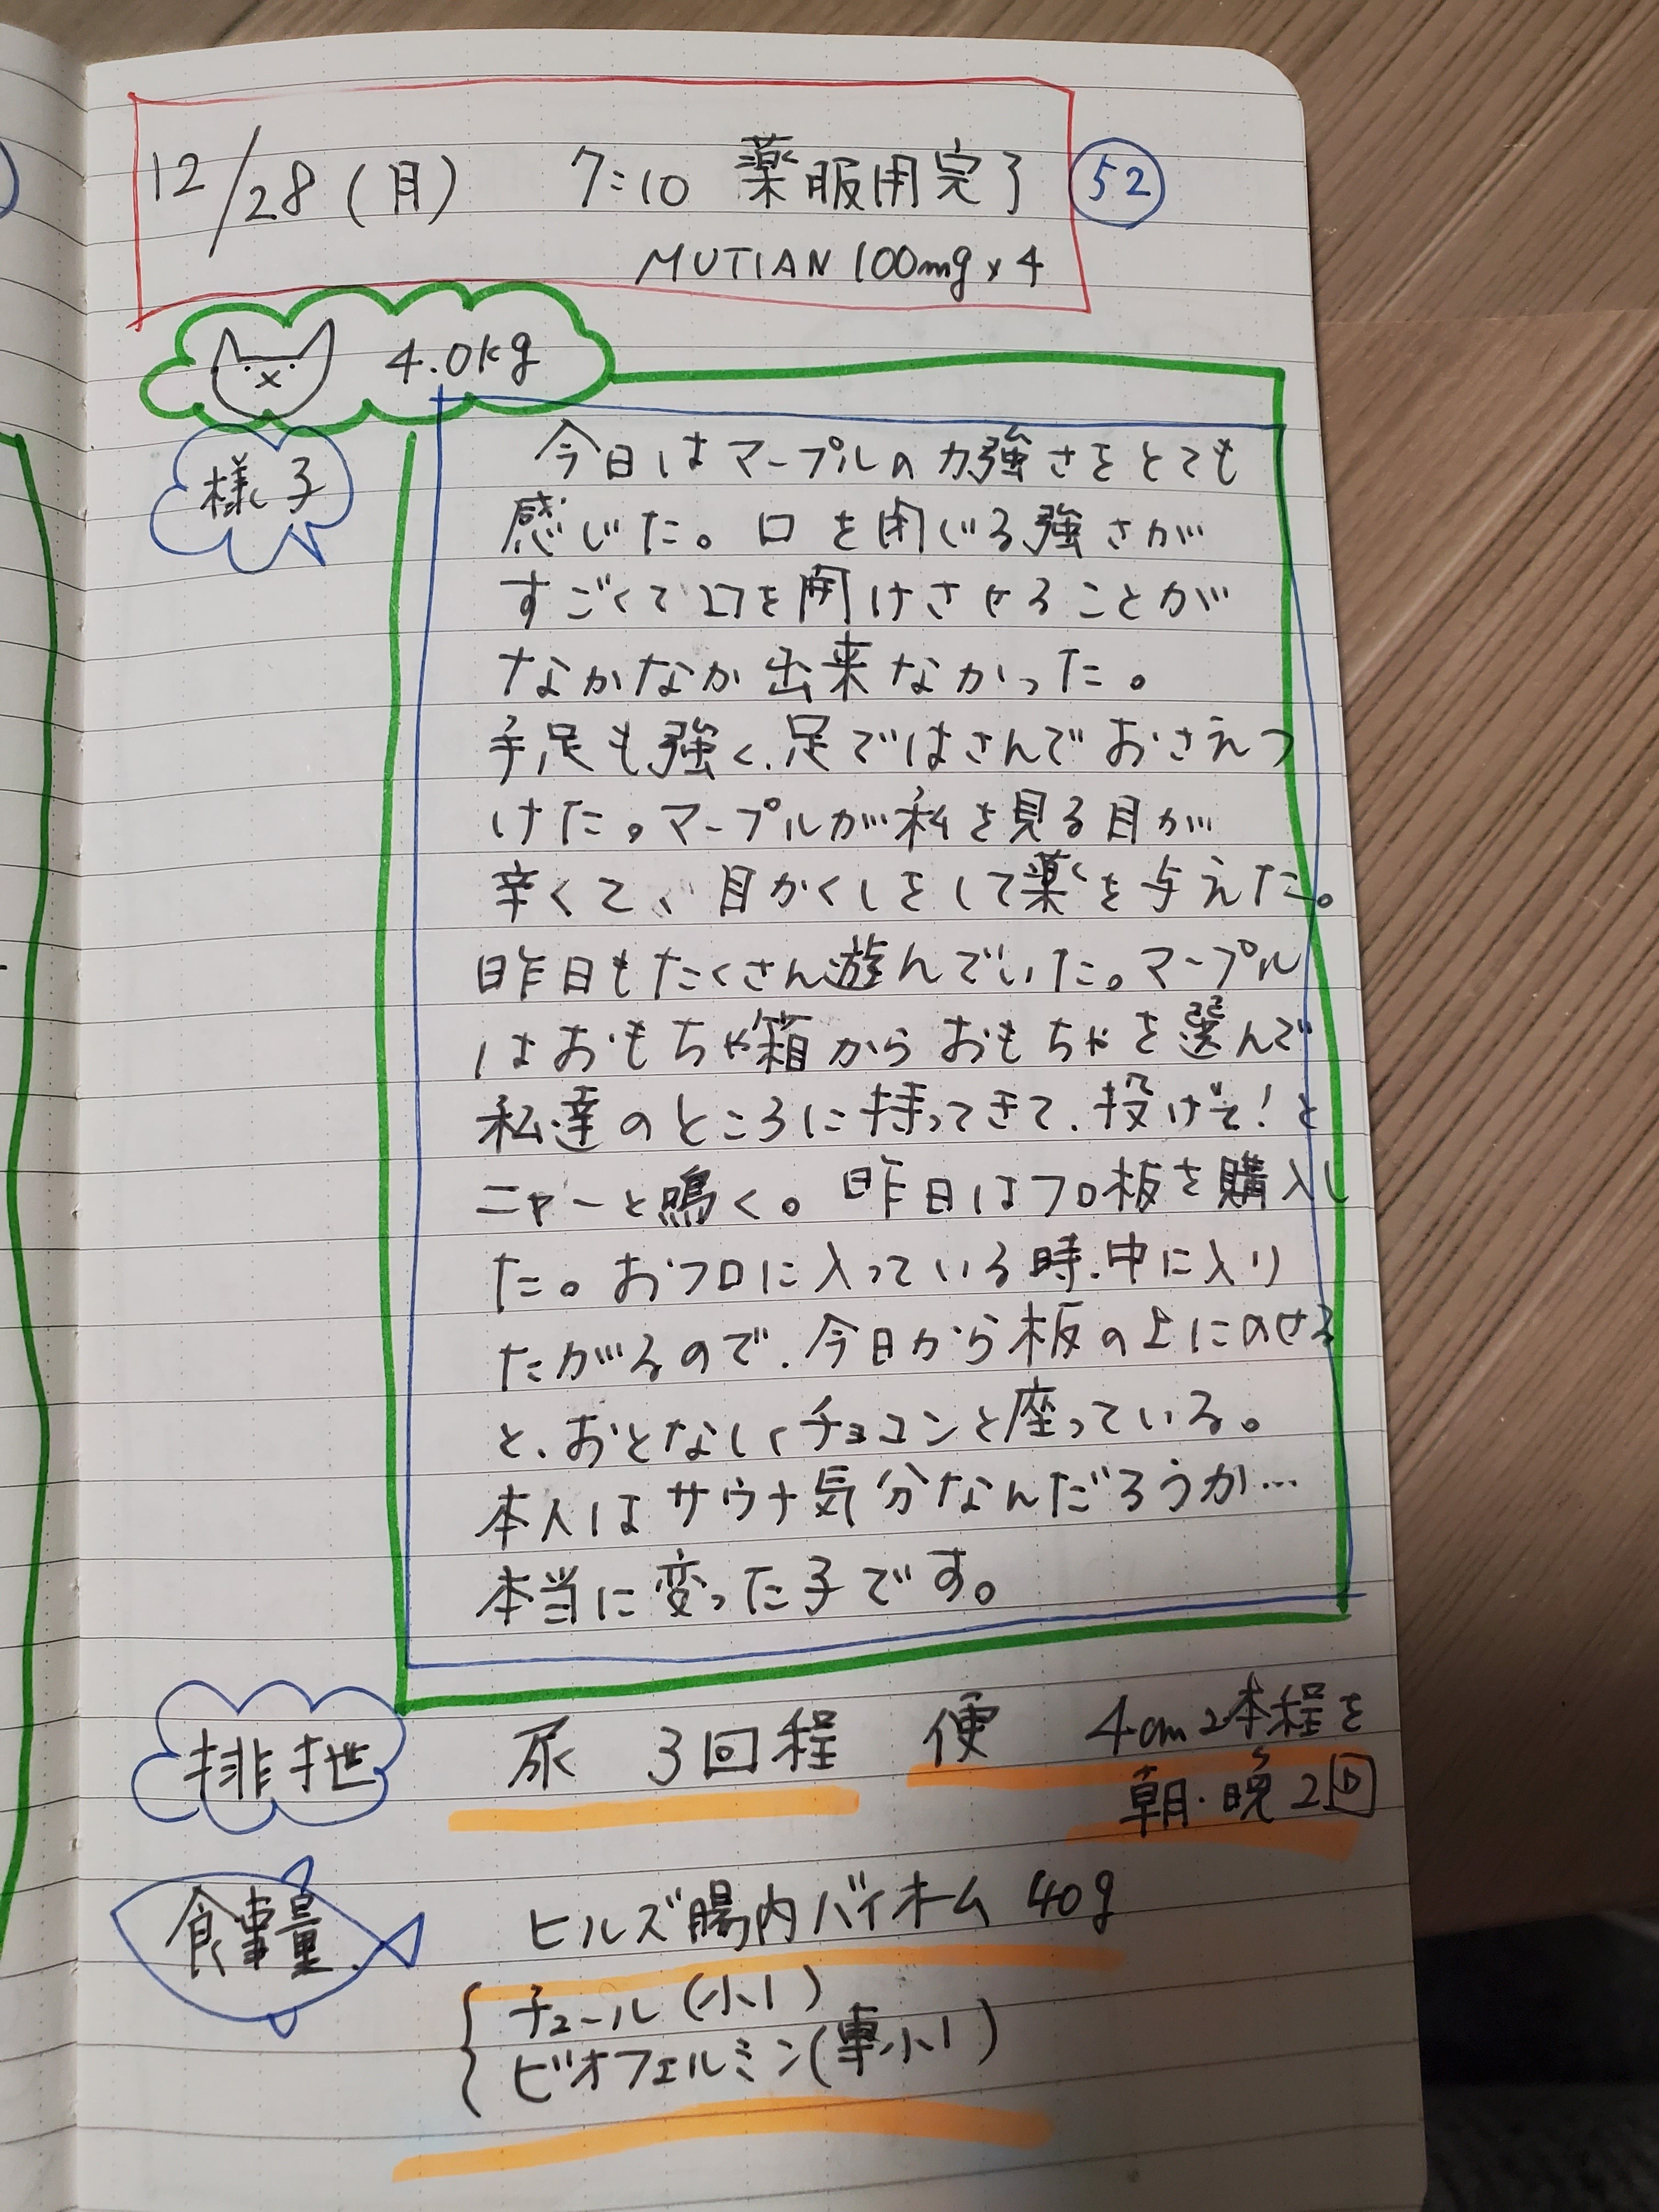 12/28(月) 7:10 薬服用完了 52
MUTIAN 100mg×4
4.0kg
様子
今日はマープルの力強さをとても
感じた。口を閉じる強さが
すごくて口を開けさせることが
なかなか出来なかった。
手足も強く、足ではさんでおさえつ
けた。マープルが私を見る目が
辛くて、目かくしをして薬を与えた。
昨日もたくさん遊んでいた。マープル
はおもちゃ箱からおもちゃを選んで
私達のところに持ってきて、投げて!と
ニャーと鳴く。昨日はフロ板を購入し
た。おフロに入っている時、中に入り
たがるので、今日から板の上にのせる
と、おとなしくチョコンと座っている。
本人はサウナ気分なんだろうか…
本当に変った子です。
排泄
尿 3回程 便 4cm2本程を
朝・晩2回
食事量
ヒルズ腸内バイオーム 40g
チュール(小1)
ビオフェルミン(専小1)